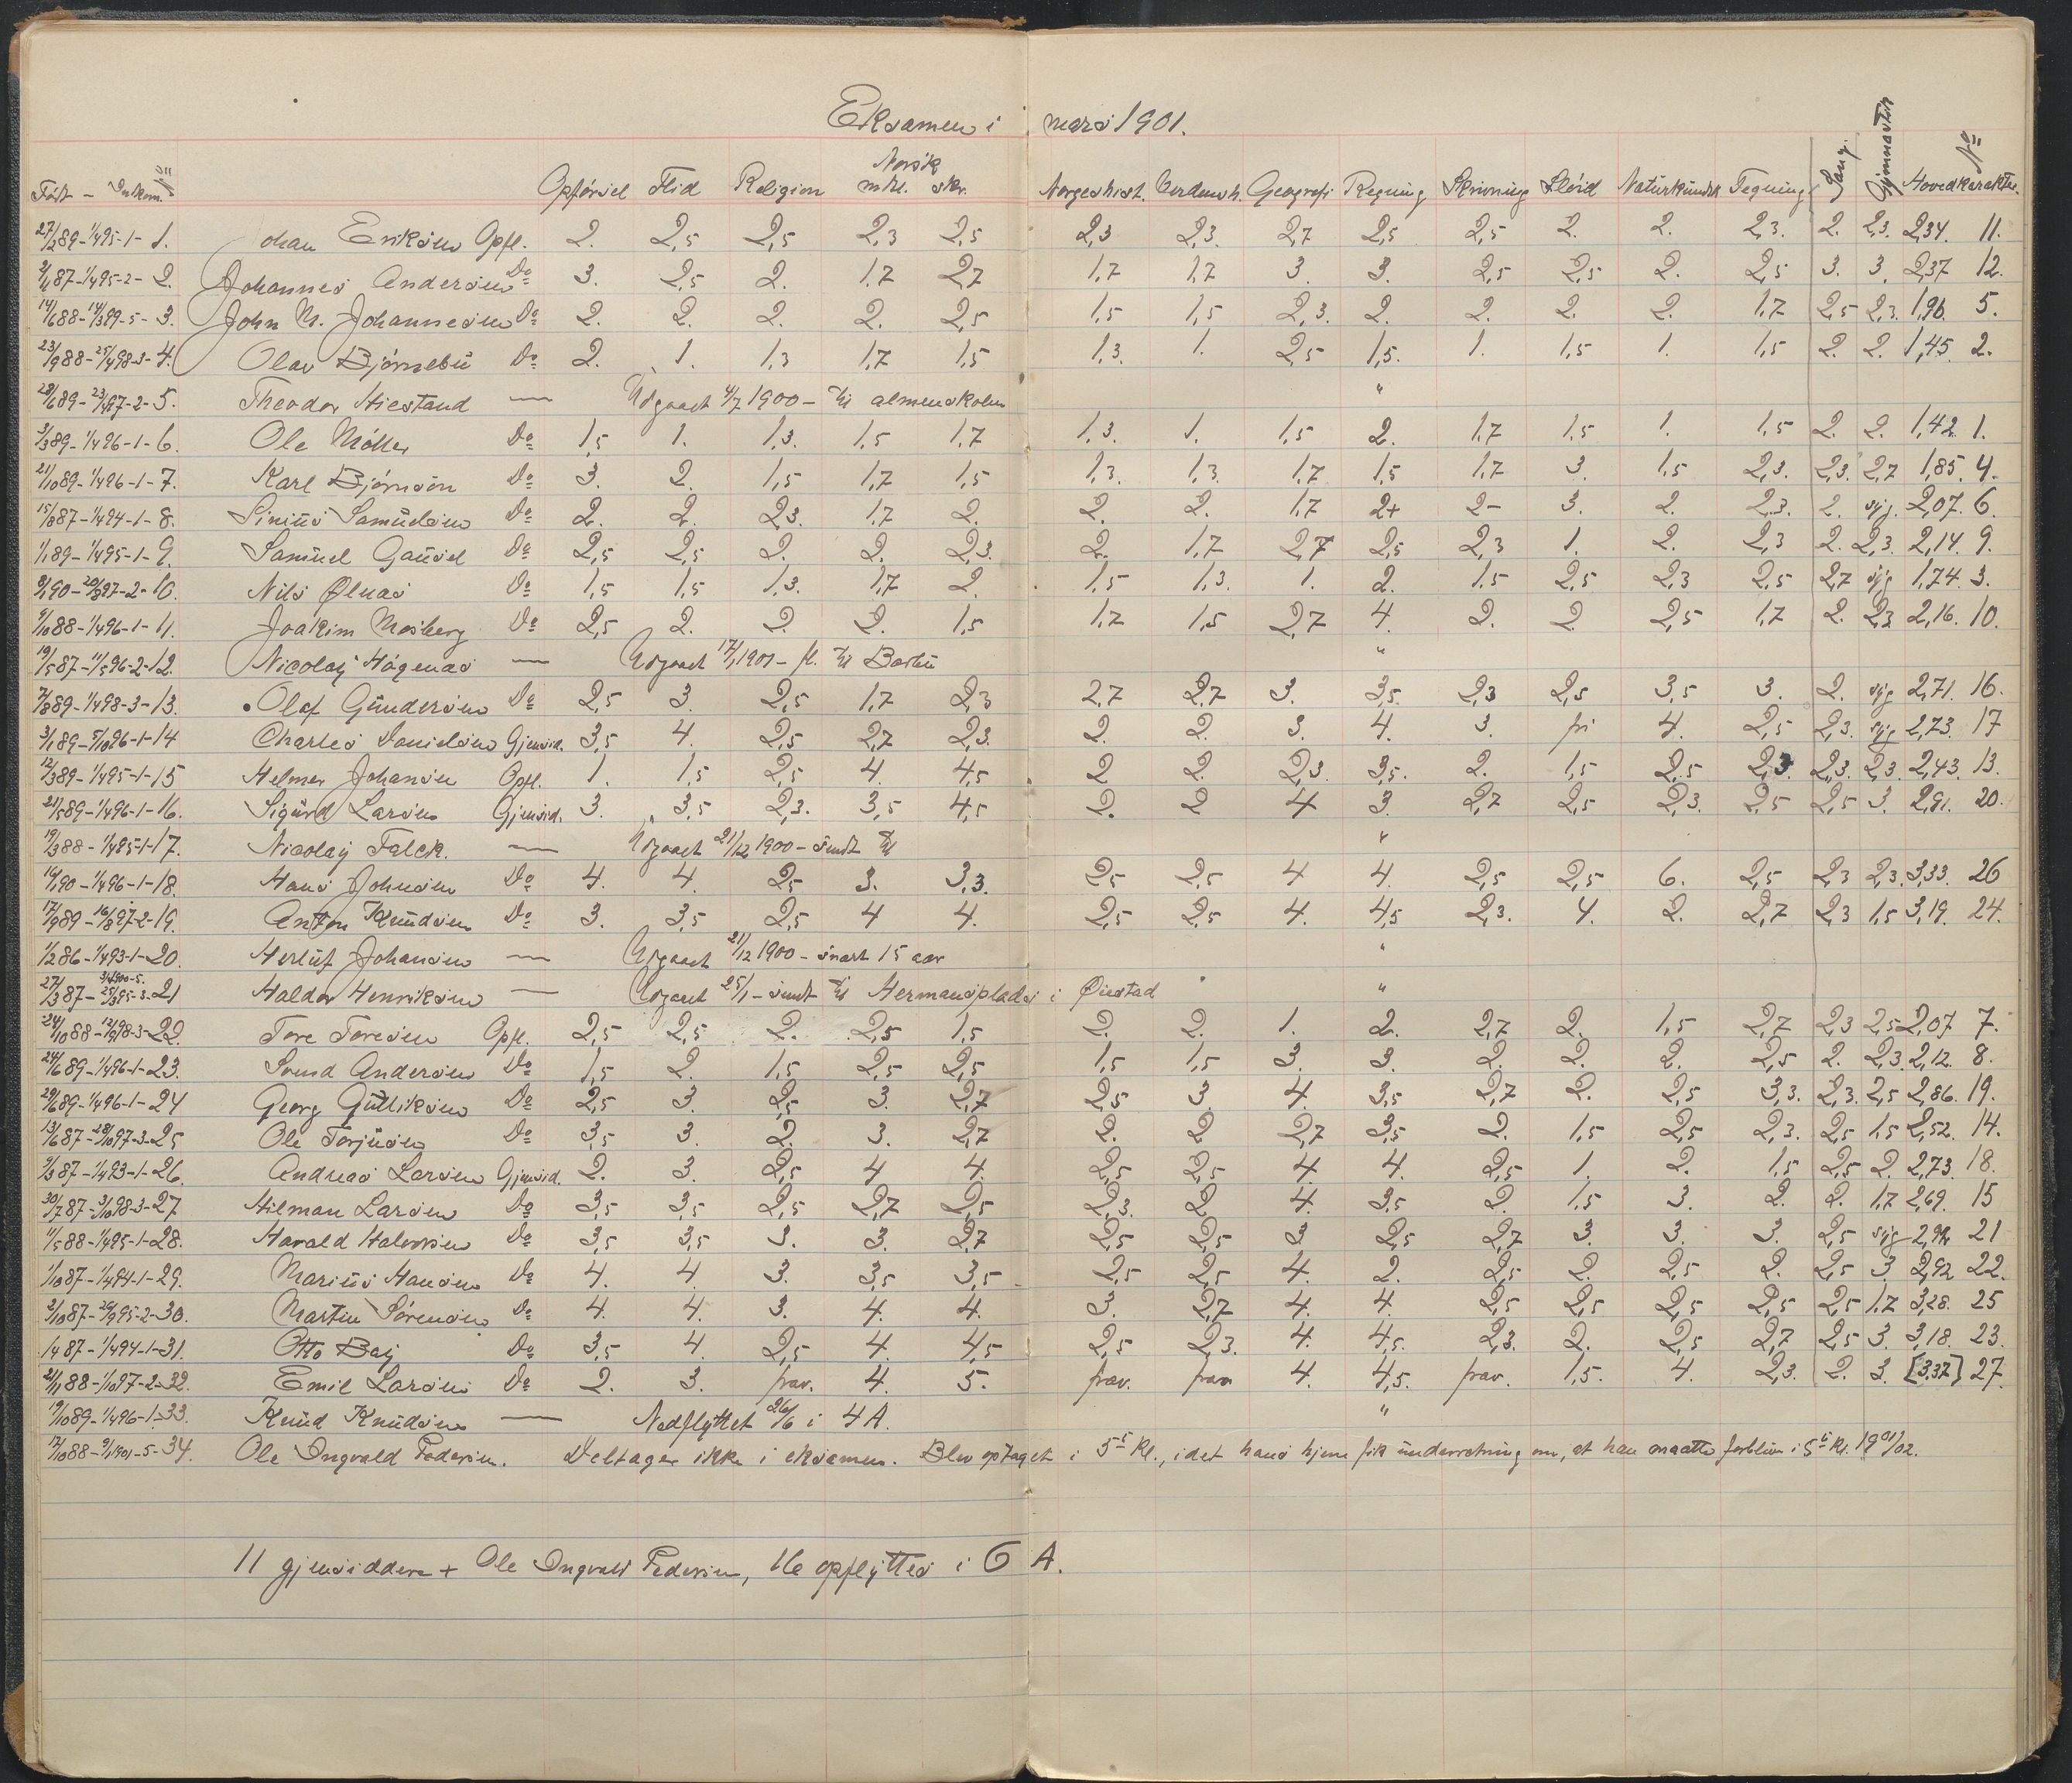 Eksamen i mars 1901.
Født - Indkom. № Opførsel Flid Religion Norsk mtl. skr. Norgeshist. Verdensh. Geografi Regning Skrivning Sløid Naturkundsk. Tegning Sang. Gymnastik Hovedkarakter. №
27/2 89 - 1/4 95 - 1 - 1. Johan Eriksen Opfl. 2. 2,5 2,5 2,3 2,5 2,3 2,3. 2,7 2,5 2,5 2. 2. 2,3. 2. 2,3. 2,34. 11.
87 - 1/4 95 - 2 - 2. Johannes Andersen Do 3. 2,5 2. 1,7 2,7 1,7 1,7 3. 3. 2,5 2,5 2. 2,5 3. 3. 2,37 12.
14/6 88 - 14/3 99 - 5 - 3. John M. Johannesen Do 2. 2. 2. 2. 2,5 1,5 1,5 2,3. 2. 2. 2. 2. 1,7 2,5 2,3. 1,96. 5.
23/9 88 - 25/4 98 - 3 - 4. Olav Bjørnebu Do 2. 1. 1,3 1,7 1,5 1,3. 1. 2,5 1,5. 1. 1,5 1. 1,5 2. 2. 1,45. 2.
28/6 89 - 23/4 97 - 2 - 5. Theodor Hiestand — Udgaaet 4/7 1900 - til almenskolen "
3/3 89 - 1/4 96 - 1 - 6. Ole Møller Do 1,5 1. 1,3. 1,5 1,7 1,3. 1. 1,5 2. 1,7 1,5 1. 1,5 2. 2. 1,42 1.
21/10 89 - 1/4 96 - 1 - 7. Karl Bjørnsön Do 3. 2. 1,5 1,7 1,5 1,3. 1,3. 1,7 1,5 1,7 3. 1,5 2,3. 2,3 2,7 1,85. 4.
15/8 87 - 1/4 94 - 1 - 8. Sinius Samuelsen Do 2. 2. 2,3. 1,7 2. 2. 2. 1,7 2+ 2- 3. 2. 2,3. 2. syg. 2,07. 6.
1/1 89 - 1/4 95 - 1 - 9. Samuel Gausel Do 2,5 2,5 2. 2. 2,3. 2. 1,7 2,7 2,5 2,3 1. 2. 2,3 2. 2,3. 2,14. 9.
8/1 90 - 20/8 97 - 2 - 10. Nils Ølnas Do 1,5 1,5 1,3. 1,7 2. 1,5 1,3. 1. 2. 1,5 2,5 2,3 2,5 2,7 syg 1,74. 3.
9/10 88 - 1/4 96 - 1 - 11. Joakim Mosberg Do 2,5 2. 2. 2. 1,5 1,7 1,5 2,7 4. 2. 2. 2,5 1,7 2. 2,3 2,16. 10.
19/5 87 - 11/5 96 - 2 - 12. Nicolay Høgenas — Udgaaet 17/1 1901 - fl. til Barbu "
7/8 89 - 1/4 98 - 3 - 13. Olaf Gundersen Do 2,5 3. 2,5 1,7 2,3 2,7 2,7 3. 3,5. 2,3 2,5 3,5 3. 2. syg 2,71. 16.
3/1 89 - 5/10 96 - 1 - 14 Charles Danielsen Gjensid. 3,5 4. 2,5 2,7 2,3. 2. 2. 3. 4. 3. fri 4. 2,5 2,3. syg 2,73. 17
12/3 89 - 1/4 95 - 1 - 15 Helmer Johansen Opfl. 1. 1,5 2,5 4. 4,5 2 2. 2,3. 3,5. 2. 1,5 2,5 2,3 2,3. 2,3. 2,43. 13.
21/5 89 - 1/4 96 - 1 - 16. Sigurd Larsen Gjensid. 3. 3,5 2,3. 3,5 4,5 2. 2 4 3. 2,7 2,5 2,3. 2,5 2,5 3. 2,91. 20.
19/3 88 - 1/4 95 - 1 - 17. Nicolay Falck. — Udgaaet 21/12 1900 - sendt til "
16/1 90 - 1/4 96 - 1 - 18. Hans Johnsen Do 4. 4. 2,5 3. 3,3. 2,5 2,5 4 4. 2,5 2,5 6. 2,5 2,3 2,3. 3,33. 26
17/9 89 - 16/8 97 - 2 - 19. Anton Knudsen Do 3. 3,5 2,5 4 4. 2,5 2,5 4. 4,5 2,3. 4. 2. 2,7 2,3 1,5 3,19. 24.
1/2 86 - 1/4 93 - 1 - 20. Herluf Johansen — Udgaaet 21/12 1900 - snart 15 aar "
27/3 87 - 25/3 95 - 3 - 21 Haldor Henriksen — Udgaaet 25/1 - sendt til Hermansplads i Øiestad "
24/10 88 - 12/9 98 - 3 - 22. Tore Toresen Opfl. 2,5 2,5 2. 2,5 1,5 2. 2. 1. 2. 2,7 2. 1,5 2,7 2,3 2,5 2,07 7.
24/6 89 - 1/4 96 - 1 - 23. Svend Andersen Do 1,5 2. 1,5 2,5 2,5 1,5 1,5 3. 3. 2. 2. 2. 2,5 2. 2,3. 2,12. 8.
29/6 89 - 1/4 96 - 1 - 24 Georg Gulliksen Do 2,5 3. 2,5 3. 2,7 2,5 3. 4. 3,5 2,7 2. 2,5 3,3. 2,3. 2,5 2,86. 19.
13/6 87 - 28/10 97 - 3 - 25 Ole Torjusen Do 3,5 3. 2. 3. 2,7 2. 2 2,7 3,5 2. 1,5 2,5 2,3. 2,5 1,5 2,52. 14.
3/3 87 - 1/4 93 - 1 - 26. Andreas Larsen Gjensid. 2. 3. 2,5 4 4. 2,5 2,5 4. 4. 2,5 1. 2. 1,5 2,5 2. 2,73. 18.
30/7 87 - 3/10 98 - 3 - 27 Hilman Larsen Do 3,5 3,5 2,5 2,7 2,5 2,3. 2. 4. 3,5 2. 1,5 3. 2. 2. 1,7 2,69. 15
11/5 88 - 1/4 95 - 1 - 28. Harald Halvorsen Do 3,5 3,5 3. 3. 2,7 2,5 2,5 3 2,5 2,7 3. 3. 3. 2,5 syg 21
1/10 87 - 1/4 94 - 1 - 29. Marius Hansen Do 4. 4. 3. 3,5 3,5 2,5 2,5 4. 2. 2,5 2. 2,5 2. 2,5 3. 2,92 22.
2/10 87 - 95 - 2 - 30. Martin Sørensen Do 4. 4. 3. 4. 4. 3. 2,7 4. 4. 2,5 2,5 2,5 2,5 2,5 1,7 3,28. 25
87 - 1/4 94 - 1 - 31. Otto Bay Do 3,5 4. 2,5 4. 4,5 2,5 2,3. 4. 4,5. 2,3. 2. 2,5 2,7 2,5 3. 3,18. 23.
21/1 88 - 1/10 97 - 2 - 32. Emil Larsen Do 2. 3. frav. 4. 5. frav. frav 4. 4,5. frav. 1,5. 4. 2,3. 2. 3. [3,37] 27.
19/10 89 - 1/4 96 - 1 - 33. Knud Knudsen — Nedflyttet 26/6 i 4 A. "
17/10 88 - 9/1 1901 - 5 - 34. Ole Ingvald Pedersen. Deltager ikke i eksamen. Blev optaget i 5te Kl., idet hans hjem fik underretning om, at han maatte forblive i 5te Kl. 1901/02.
11 gjensiddere + Ole Ingvald Pedersen, 16 opflyttes i 6 A.